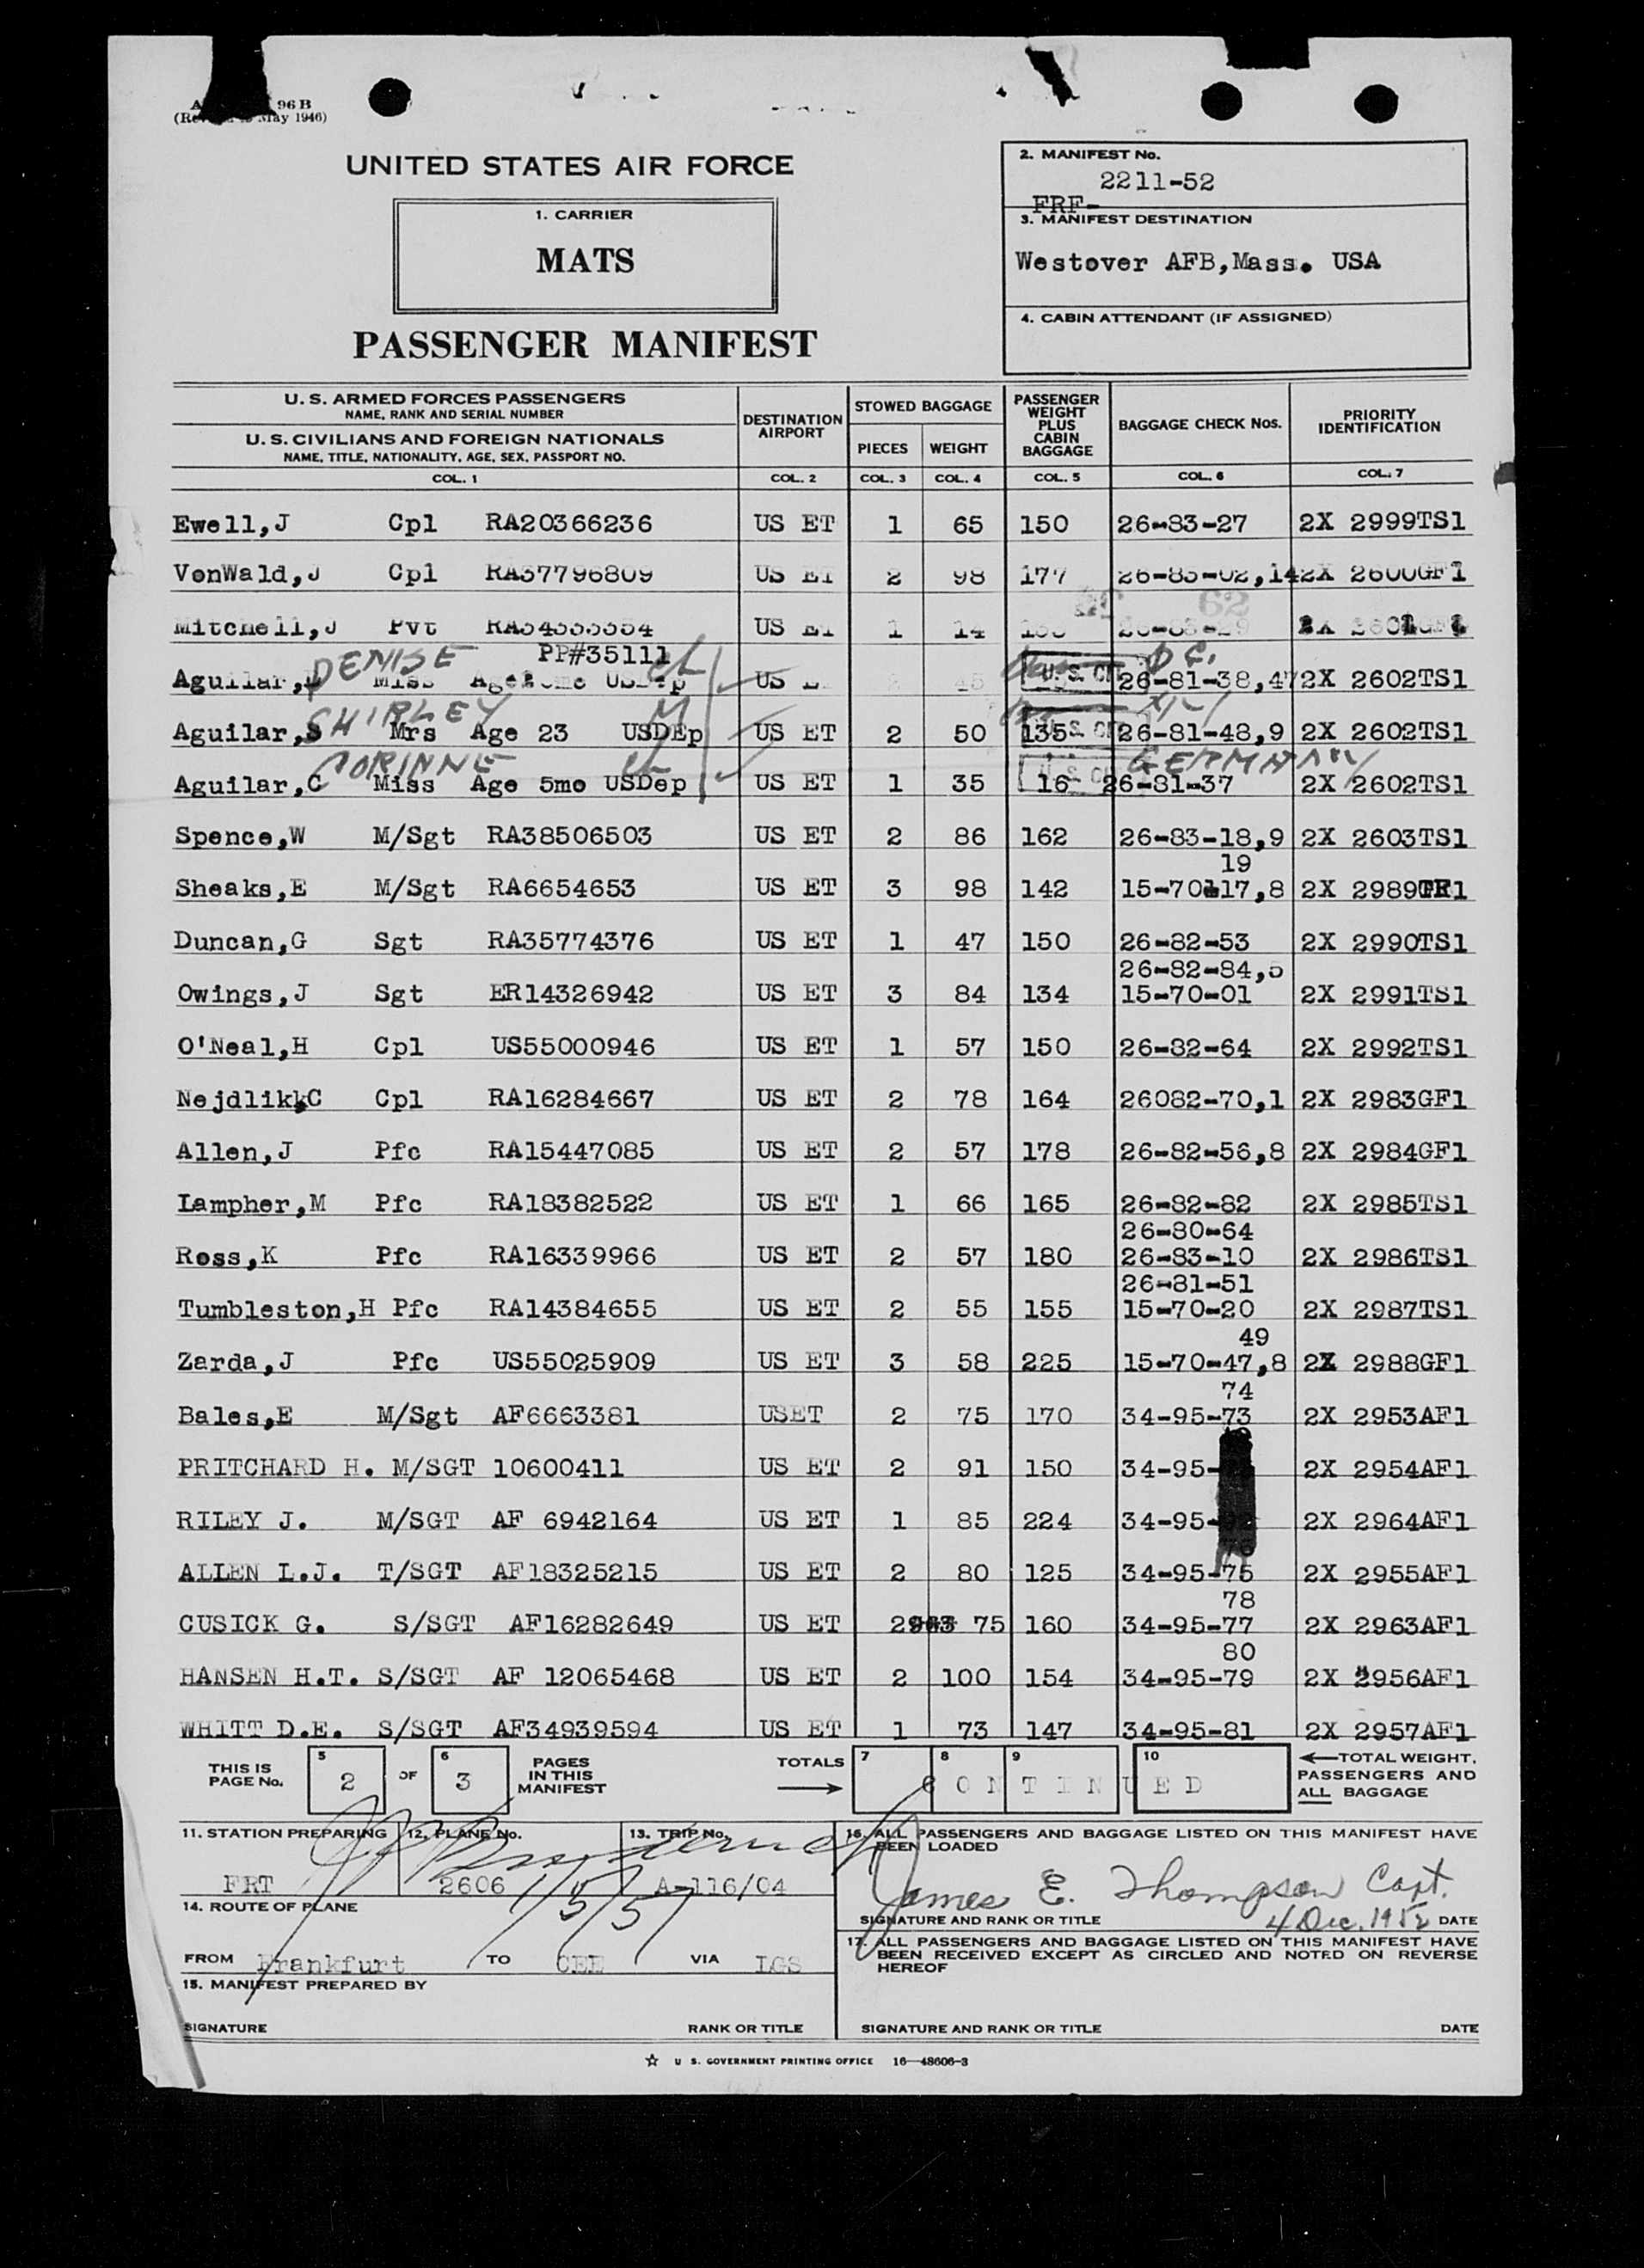 96 B
May 1946)
UNITED STATES AIR FORCE
1. CARRIER
MATS
PASSENGER MANIFEST
2. MANIFEST No.
2211-52
FRF-
3. MANIFEST DESTINATION
Westover AFB,Mass. USA
4. CABIN ATTENDANT (IF ASSIGNED)
U. S. ARMED FORCES PASSENGERS
NAME, RANK AND SERIAL NUMBER
U. S. CIVILIANS AND FOREIGN NATIONALS
NAME, TITLE, NATIONALITY, AGE, SEX, PASSPORT NO.
DESTINATION AIRPORT
STOWED BAGGAGE
PIECES WEIGHT
PASSENGER WEIGHT PLUS CABIN BAGGAGE
BAGGAGE CHECK Nos.
PRIORITY IDENTIFICATION
COL. 1 COL. 2 COL. 3 COL. 4 COL. 5 COL. 6 COL. 7
Ewell,J Cpl RA20366236 US ET 1 65 150 26-83-27 2X 2999TS1
VonWald,J Cpl RA37796809 US ET 2 98 177 26-83-02,14 2X 2600GF1
62
Mitchell,J Pvt US ET 1 14
DENISE PP#35111 ch
Aguilar, Miss US 26-81-38,47 2X 2602TS1
SHIRLEY M
Aguilar,S Mrs Age 23 USDEp US ET 2 50 135 26-81-48,9 2X 2602TS1
CORINNE ch GERMANY
Aguilar,C Miss Age 5mo USDep US ET 1 35 16 26-81-37 2X 2602TS1
Spence,W M/Sgt RA38506503 US ET 2 86 162 26-83-18,9 2X 2603TS1
19
Sheaks,E M/Sgt RA6654653 US ET 3 98 142 15-70-17,8 2X 2989
Duncan,G Sgt RA35774376 US ET 1 47 150 26-82-53 2X 2990TS1
26-82-84,5
Owings,J Sgt ER14326942 US ET 3 84 134 15-70-01 2X 2991TS1
O'Neal,H Cpl US55000946 US ET 1 57 150 26-82-64 2X 2992TS1
Nejdlik,C Cpl RA16284667 US ET 2 78 164 26082-70,1 2X 2983GF1
Allen,J Pfc RA15447085 US ET 2 57 178 26-82-56,8 2X 2984GF1
Lampher,M Pfc RA18382522 US ET 1 66 165 26-82-82 2X 2985TS1
26-80-64
Ross,K Pfc RA16339966 US ET 2 57 180 26-83-10 2X 2986TS1
26-81-51
Tumbleston,H Pfc RA14384655 US ET 2 55 155 15-70-20 2X 2987TS1
49
Zarda,J Pfc US55025909 US ET 3 58 225 15-70-47,8 2X 2988GF1
74
Bales,E M/Sgt AF6663381 USET 2 75 170 34-95-73 2X 2953AF1
PRITCHARD H. M/SGT 10600411 US ET 2 91 150 34-95- 2X 2954AF1
RILEY J. M/SGT AF 6942164 US ET 1 85 224 34-95- 2X 2964AF1
76
ALLEN L.J. T/SGT AF18325215 US ET 2 80 125 34-95-75 2X 2955AF1
78
CUSICK G. S/SGT AF16282649 US ET 2 75 160 34-95-77 2X 2963AF1
80
HANSEN H.T. S/SGT AF 12065468 US ET 2 100 154 34-95-79 2X 2956AF1
WHITT D.E. S/SGT AF34939594 US ET 1 73 147 34-95-81 2X 2957AF1
THIS IS PAGE No. 5 2 OF 6 3 PAGES IN THIS MANIFEST
TOTALS 7 8 9 10
CONTINUED
TOTAL WEIGHT, PASSENGERS AND ALL BAGGAGE
11. STATION PREPARING 12. PLANE No. 13. TRIP No.
FRT 2606 A-116/04
14. ROUTE OF PLANE
FROM Frankfurt TO CEE VIA LGS
15. MANIFEST PREPARED BY
SIGNATURE RANK OR TITLE
16. ALL PASSENGERS AND BAGGAGE LISTED ON THIS MANIFEST HAVE
BEEN LOADED
James E. Thompson Capt.
4 Dec. 1952
SIGNATURE AND RANK OR TITLE DATE
17. ALL PASSENGERS AND BAGGAGE LISTED ON THIS MANIFEST HAVE
BEEN RECEIVED EXCEPT AS CIRCLED AND NOTED ON REVERSE
HEREOF
SIGNATURE AND RANK OR TITLE DATE
U S. GOVERNMENT PRINTING OFFICE 16—48606-3